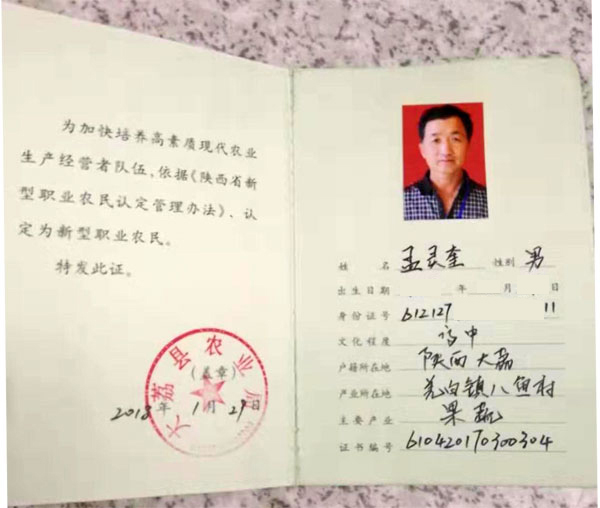 为加快培养高素质现代农业
生产经营者队伍,依据《陕西省新
型职业农民认定管理办法》、认
定为新型职业农民。
特发此证。
大荔县农业局
(盖章)
2018年 1月 29日
姓名 孟灵奎 性别 男
出生日期 年 月 日
身份证号 612127 11
文化程度 高中
户籍所在地 陕西大荔
产业所在地 羌白镇八鱼村
主要产业 果蔬
证书编号 610420170300304